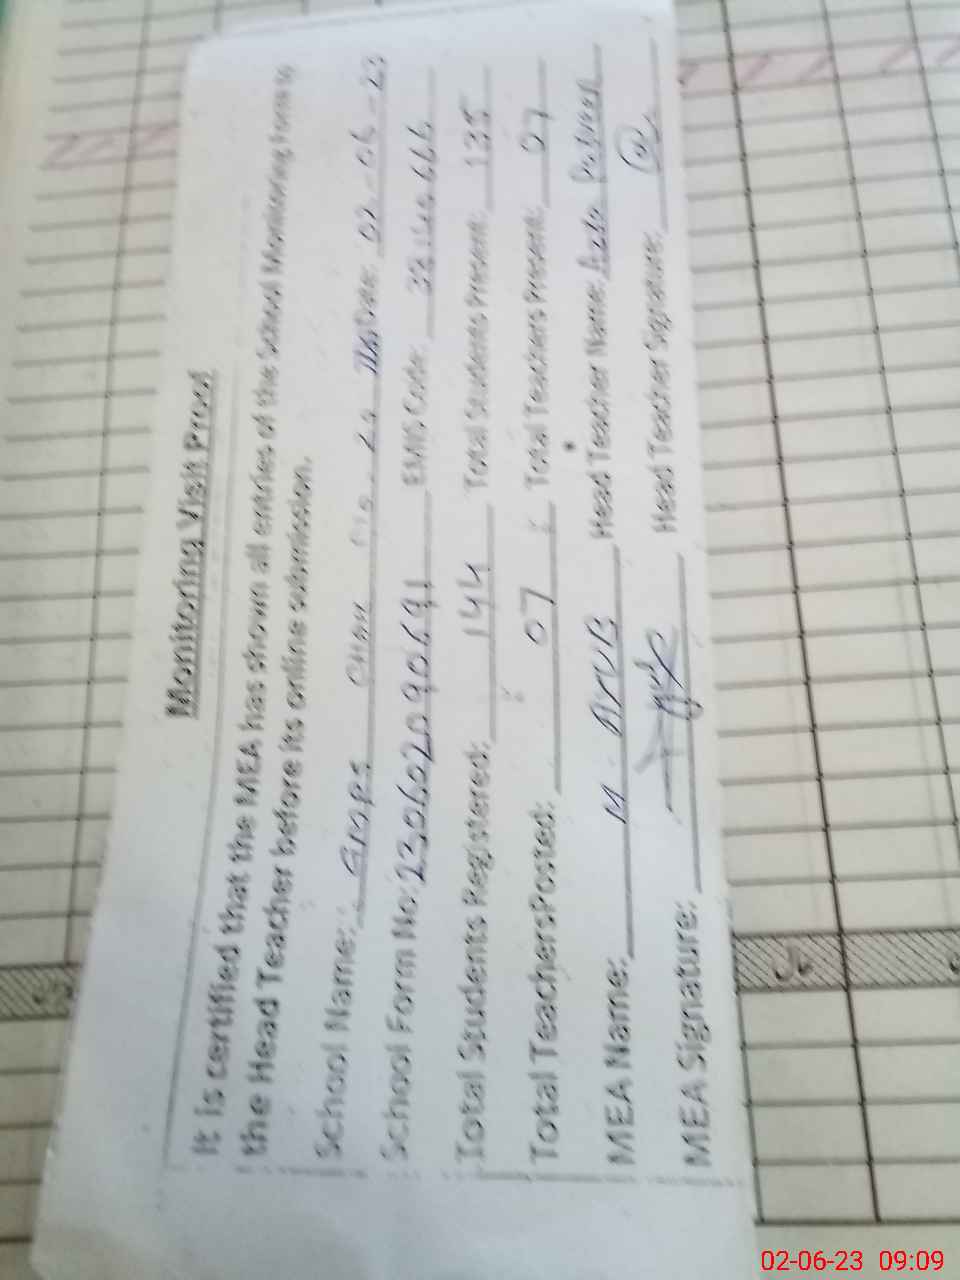 Monitoring Visit Proof
It is certified that the MEA has shown all entries of the School Monitoring Forms to
the Head Teacher before its online submission.
School Name: GMPS Chak No. Date: 02-06-23
School Form No: 230602090691 EMIS Code:
Total Students Registered: 144 Total Students Present: 135
Total Teachers Posted: 07 Total Teachers Present: 07
MEA Name: M. AYUB Head Teacher Name:
MEA Signature: Head Teacher Signature:
02-06-23 09:09